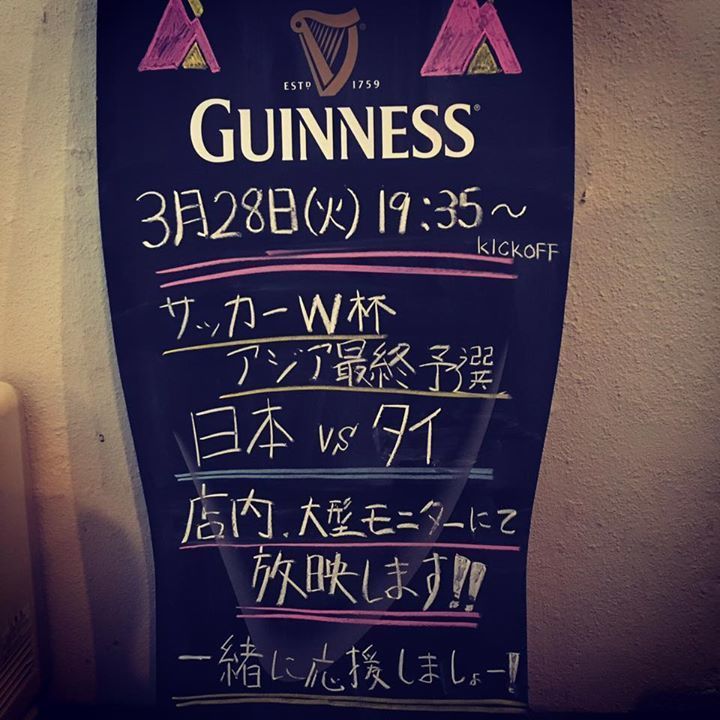 ESTD 1759
GUINNESS
3月28日(火) 19:35～
KICKOFF
サッカーW杯
アジア最終予選
日本 vs タイ
店内、大型モニターにて
放映します!!
一緒に応援しましょー!